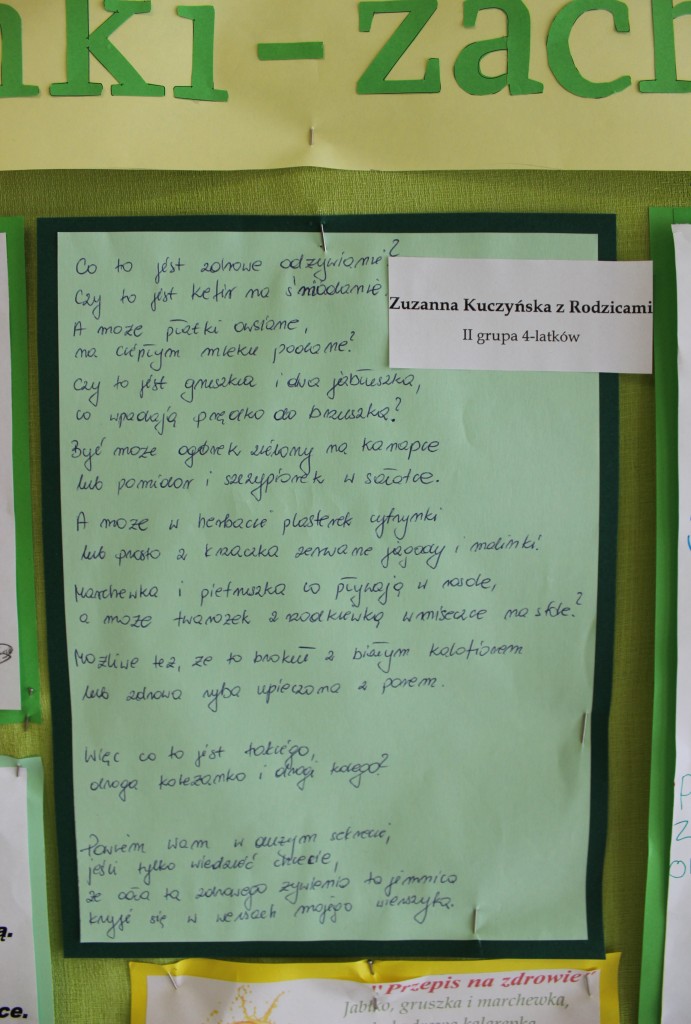 nki-zach
Co to jest zdrowe odżywianie?
Czy to jest kefir na śniadanie
Zuzanna Kuczyńska z Rodzicami
II grupa 4-latków
A może płatki owsiane,
na ciepłym mleku podane?
Czy to jest gruszka i dwa jabłuszka,
co wpadają prędko do brzuszka?
Być może ogórek zielony na kanapce
lub pomidor i szczypiorek w sałatce.
A może w herbacie plasterek cytrynki
lub prosto z krzaczka zerwane jagody i malinki!
Marchewka i pietruszka co pływają w rosole,
a może twarożek z rzodkiewką w miseczce na stole?
Możliwe też, że to brokuł z białym kalafiorem
lub zdrowa ryba upieczona z porem.
Więc co to jest takiego,
droga koleżanko i drogi kolego?
Powiem Wam w dużym sekrecie,
jeśli tylko wiedzieć chcecie,
że cała ta zdrowego żywienia tajemnica
kryje się w wersach mojego wierszyka.
ą.
ce.
"Przepis na zdrowie"
Jabłko, gruszka i marchewka,